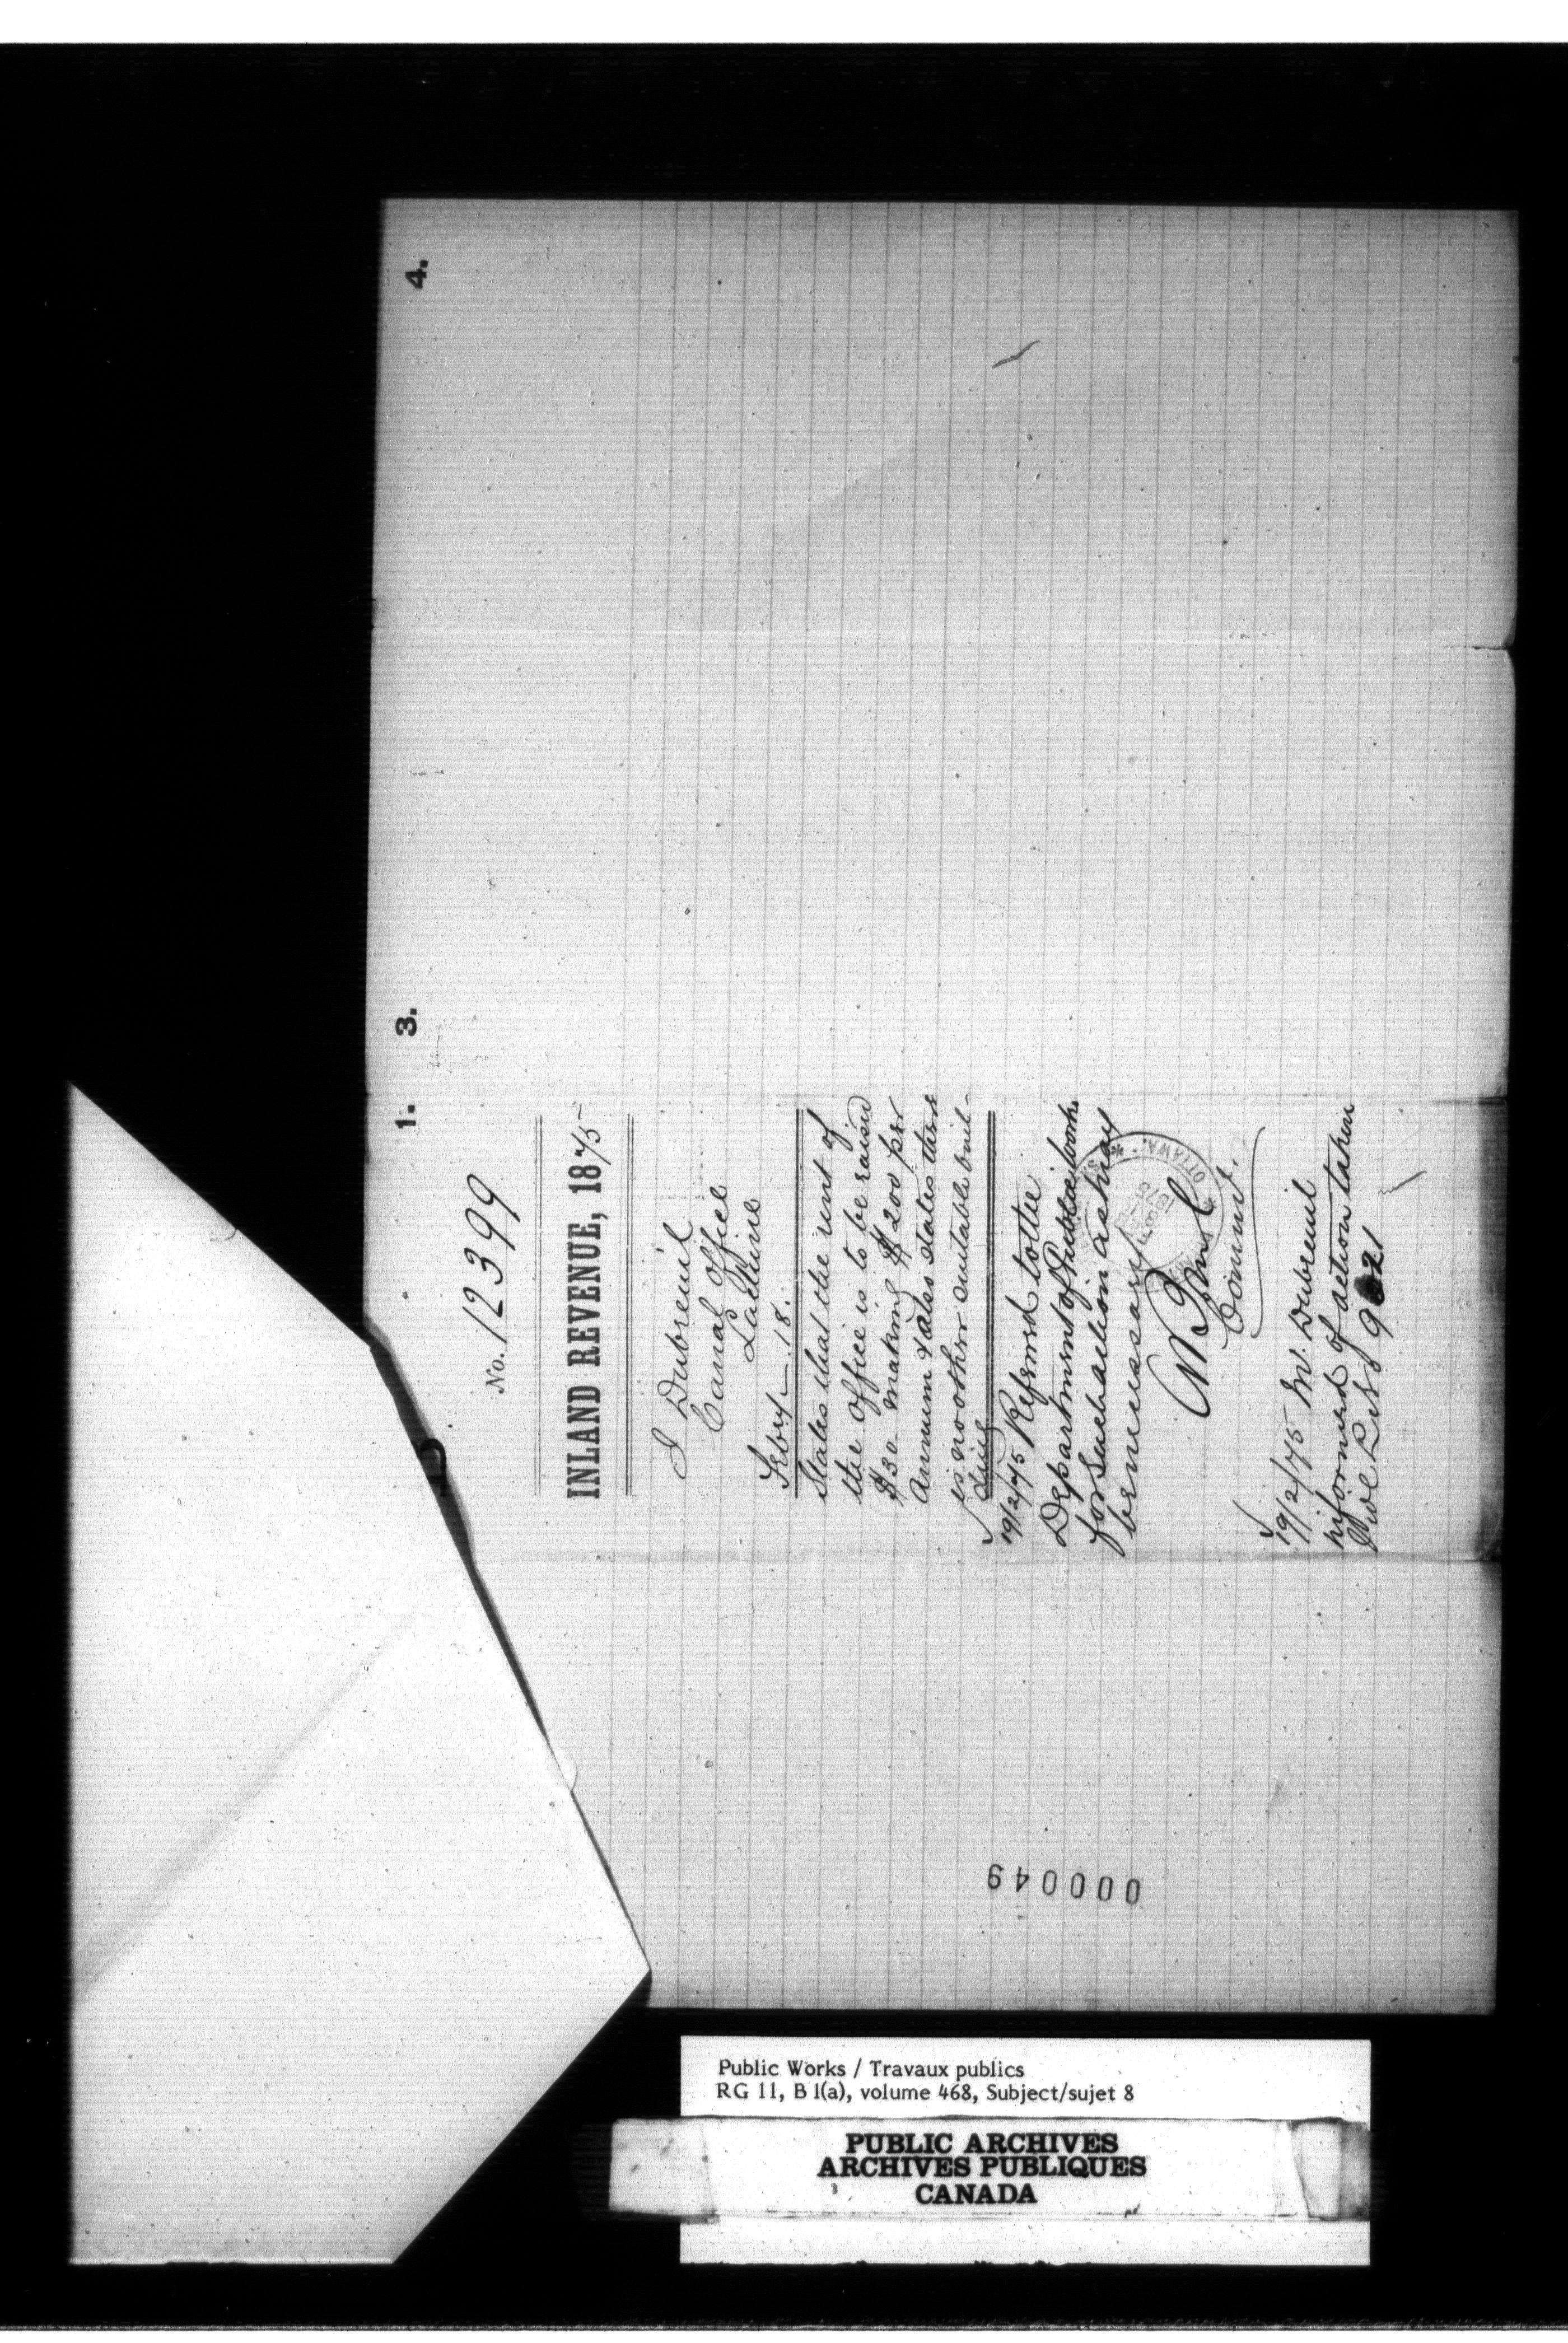 4.
3.
1.
No. 12399
INLAND REVENUE, 1875
I Dubreuil
Canal Office
Lachine
Feby 18.
States that the rent of
the Office is to be raised
$30 making $200 per
Annum & also states there
is no other suitable buil-
ding
19/2/75 Referred to the
Department of Public Works
for such action as may
be necessary
Commr.
OTTAWA.
19/2/75 Mr. Dubreuil
informed of action taken
9021
000049
Public Works / Travaux publics
RG 11, B 1(a), volume 468, Subject/sujet 8
PUBLIC ARCHIVES
ARCHIVES PUBLIQUES
CANADA